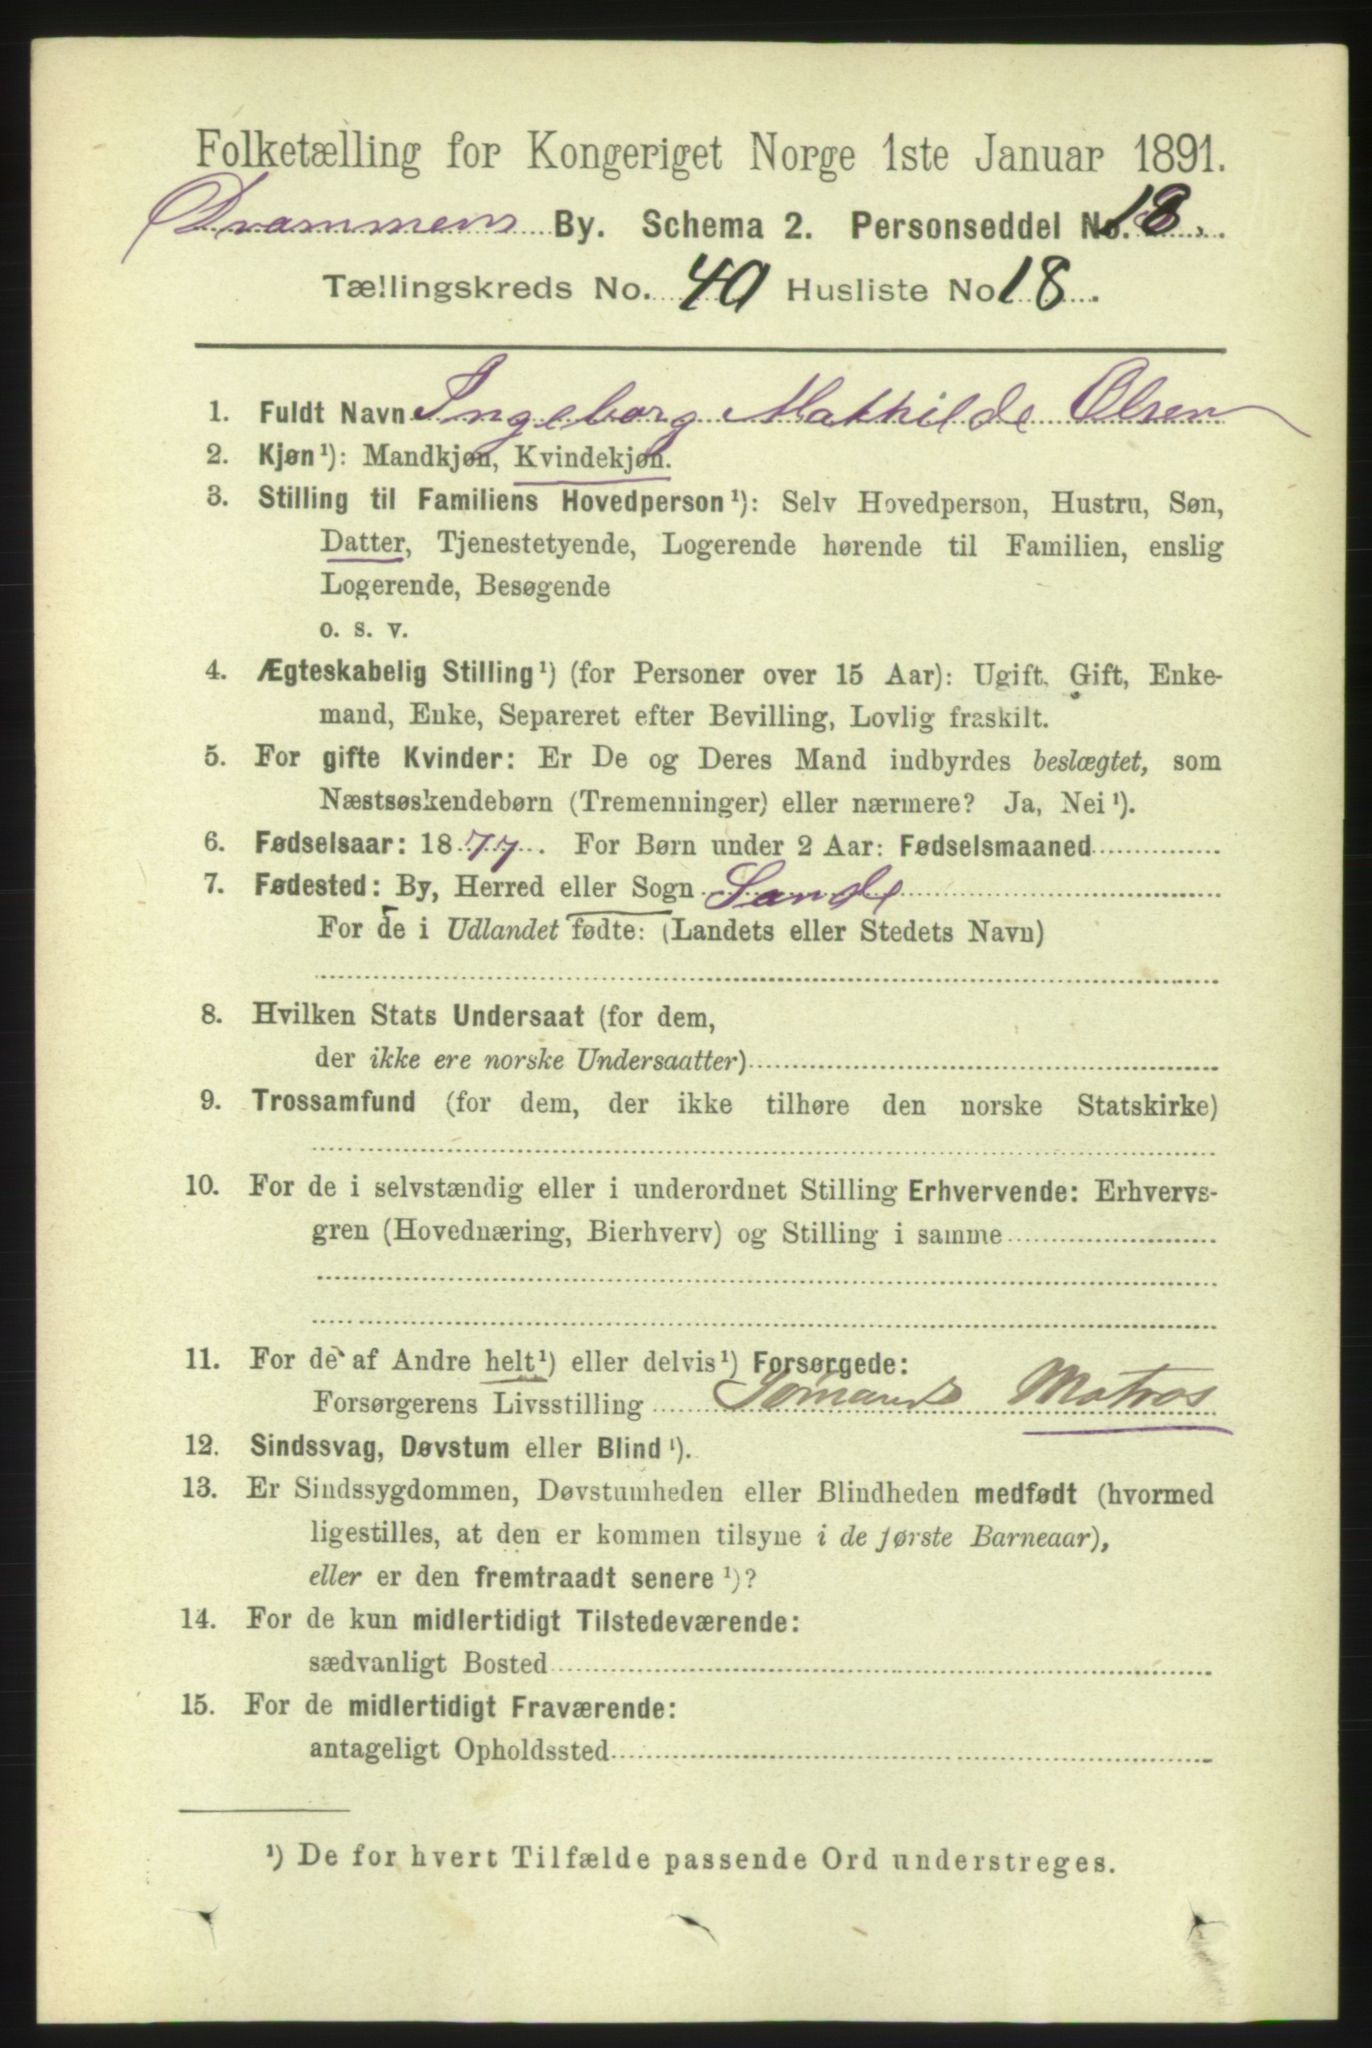 Folketælling for Kongeriget Norge 1ste Januar 1891.
Drammens By. Schema 2. Personseddel No. 18.
Tællingskreds No. 40 Husliste No 18.
1. Fuldt Navn Ingeborg Mathilde Olsen
2. Kjøn¹): Mandkjøn, Kvindekjøn.
3. Stilling til Familiens Hovedperson¹): Selv Hovedperson, Hustru, Søn,
Datter, Tjenestetyende, Logerende hørende til Familien, enslig
Logerende, Besøgende
o. s. v.
4. Ægteskabelig Stilling¹) (for Personer over 15 Aar): Ugift, Gift, Enke-
mand, Enke, Separeret efter Bevilling, Lovlig fraskilt.
5. For gifte Kvinder: Er De og Deres Mand indbyrdes beslægtet, som
Næstsøskendebørn (Tremenninger) eller nærmere? Ja, Nei¹).
6. Fødselsaar: 1877. For Børn under 2 Aar: Fødselsmaaned
7. Fødested: By, Herred eller Sogn Sande
For de i Udlandet fødte: (Landets eller Stedets Navn)
8. Hvilken Stats Undersaat (for dem,
der ikke ere norske Undersaatter)
9. Trossamfund (for dem, der ikke tilhøre den norske Statskirke)
10. For de i selvstændig eller i underordnet Stilling Erhvervende: Erhvervs-
gren (Hovednæring, Bierhverv) og Stilling i samme
11. For de af Andre helt¹) eller delvis¹) Forsørgede:
Forsørgerens Livsstilling Sømand Matros
12. Sindssvag, Døvstum eller Blind¹).
13. Er Sindssygdommen, Døvstumheden eller Blindheden medfødt (hvormed
ligestilles, at den er kommen tilsyne i de første Barneaar),
eller er den fremtraadt senere¹)?
14. For de kun midlertidigt Tilstedeværende:
sædvanligt Bosted
15. For de midlertidigt Fraværende:
antageligt Opholdssted
¹) De for hvert Tilfælde passende Ord understreges.